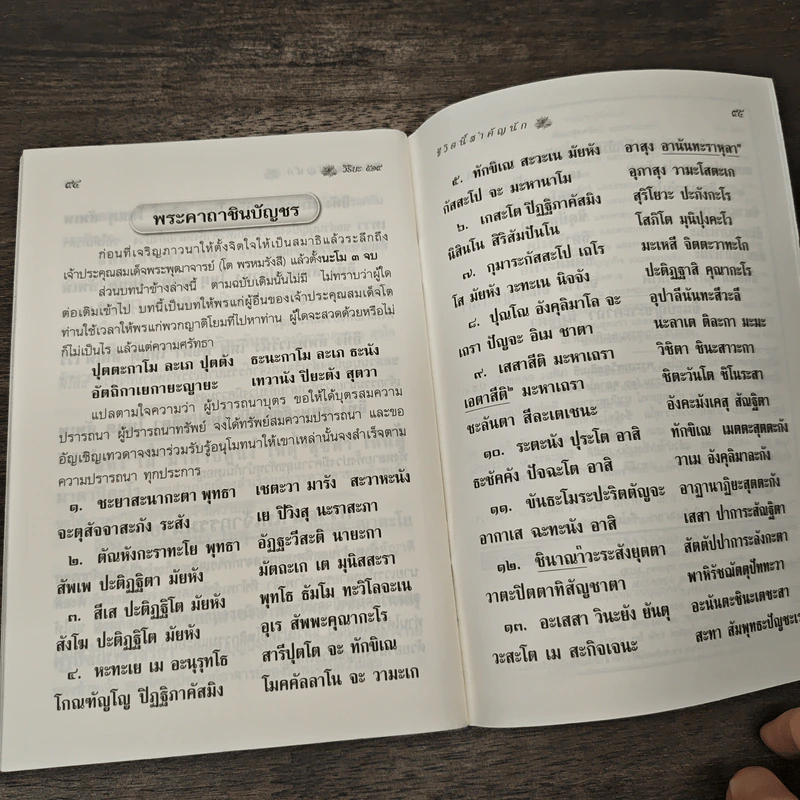 ๙๔
วิริยะ ๕๑๙
พระคาถาชินบัญชร
ก่อนที่เจริญภาวนาให้ตั้งจิตใจให้เป็นสมาธิแล้วระลึกถึง
เจ้าประคุณสมเด็จพระพุฒาจารย์ (โต พรหมรังสี) แล้วตั้งนะโม ๓ จบ
ส่วนบทนำข้างล่างนี้ ตามฉบับเดิมนั้นไม่มี ไม่ทราบว่าผู้ใด
ต่อเติมเข้าไป บทนี้เป็นบทให้พรแก่ผู้อื่นของเจ้าประคุณสมเด็จโต
ท่านใช้เวลาให้พรแก่พวกญาติโยมที่ไปหาท่าน ผู้ใดจะสวดด้วยหรือไม่
ก็ไม่เป็นไร แล้วแต่ความศรัทธา
ปุตตะกาโม ละเภ ปุตตัง ธะนะกาโม ละเภ ธะนัง
อัตถิกาเยกายะญายะ เทวานัง ปิยะตัง สุตวา
แปลตามใจความว่า ผู้ปรารถนาบุตร ขอให้ได้บุตรสมความ
ปรารถนา ผู้ปรารถนาทรัพย์ จงได้ทรัพย์สมความปรารถนา และขอ
อัญเชิญเทวดาจงมาร่วมรับรู้อนุโมทนาให้เขาเหล่านั้นจงสำเร็จตาม
ความปรารถนา ทุกประการ
๑. ชะยาสะนากะตา พุทธา เชตะวา มารัง สะวาหะนัง
จะตุสัจจาสะภัง ระสัง เย ปิวิงสุ นะราสะภา
๒. ตัณหังกะราทะโย พุทธา อัฏฐะวีสะติ นายะกา
สัพเพ ปะติฏฐิตา มัยหัง มัตถะเก เต มุนิสสะรา
๓. สีเส ปะติฏฐิโต มัยหัง พุทโธ ธัมโม ทะวิโลจะเน
สังโฆ ปะติฏฐิโต มัยหัง อุเร สัพพะคุณากะโร
๔. หะทะเย เม อะนุรุทโธ สารีปุตโต จะ ทักขิเณ
โกณฑัญโญ ปิฏฐิภาคัสมิง โมคคัลลาโน จะ วามะเก
ชีวิตนี้สำคัญนัก
๙๕
๕. ทักขิเณ สะวะเน มัยหัง อาสุง อานันทะราหุลา
กัสสะโป จะ มะหานาโม อุภาสุง วามะโสตะเก
๖. เกสะโต ปิฏฐิภาคัสมิง สุริโยวะ ปะภังกะโร
นิสินโน สิริสัมปันโน โสภิโต มุนิปุงคะโว
๗. กุมาระกัสสะโป เถโร มะเหสี จิตตะวาทะโก
โส มัยหัง วะทะเน นิจจัง ปะติฏฐาสิ คุณากะโร
๘. ปุณโณ อังคุลิมาโล จะ อุปาลีนันทะสีวะลี
เถรา ปัญจะ อิเม ชาตา นะลาเต ติละกา มะมะ
๙. เสสาสีติ มะหาเถรา วิชิตา ชินะสาวะกา
เอตาสีติ๒ มะหาเถรา ชิตะวันโต ชิโนระสา
ชะลันตา สีละเตเชนะ อังคะมังเคสุ สัณฐิตา
๑๐. ระตะนัง ปุระโต อาสิ ทักขิเณ เมตตะสุตตะกัง
ธะชัคคัง ปัจฉะโต อาสิ วาเม อังคุลิมาละกัง
๑๑. ขันธะโมระปะริตตัญจะ อาฏานาฏิยะสุตตะกัง
อากาเส ฉะทะนัง อาสิ เสสา ปาการะสัณฐิตา
๑๒. ชินาณาวะระสังยุตตา สัตตัปปาการะลังกะตา
วาตะปิตตาทิสัญชาตา พาหิรัชฌัตตุปัททะวา
๑๓. อะเสสา วินะยัง ยันตุ อะนันตะชินะเตชะสา
วะสะโต เม สะกิจเจนะ สะทา สัมพุทธะปัญชะเร